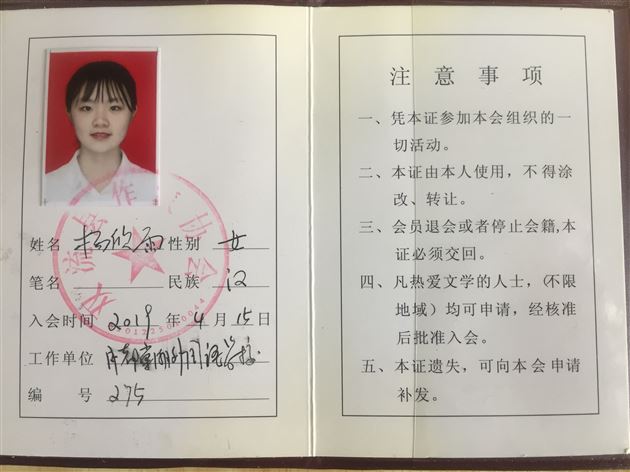 作 协会
姓名 杨欣雨 性别 女
笔名 民族 汉
入会时间 2019 年 4 月 15 日
工作单位
编 号 275
注意事项
一、凭本证参加本会组织的一
切活动。
二、本证由本人使用，不得涂
改、转让。
三、会员退会或者停止会籍,本
证必须交回。
四、凡热爱文学的人士，(不限
地域）均可申请，经核准
后批准入会。
五、本证遗失，可向本会申请
补发。